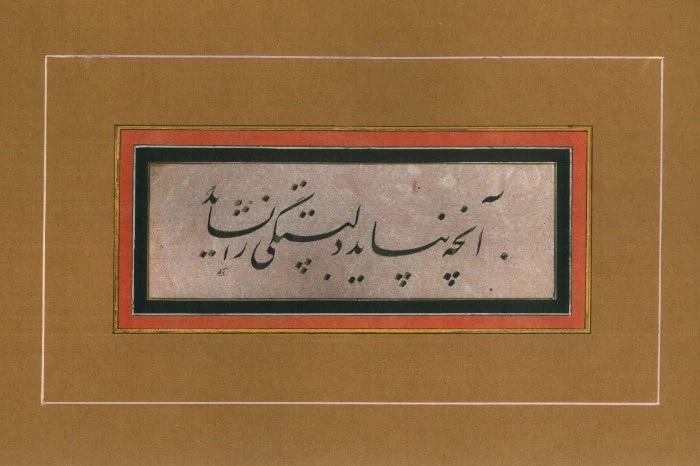 آنچه نپاید دلبستگی را نشاید